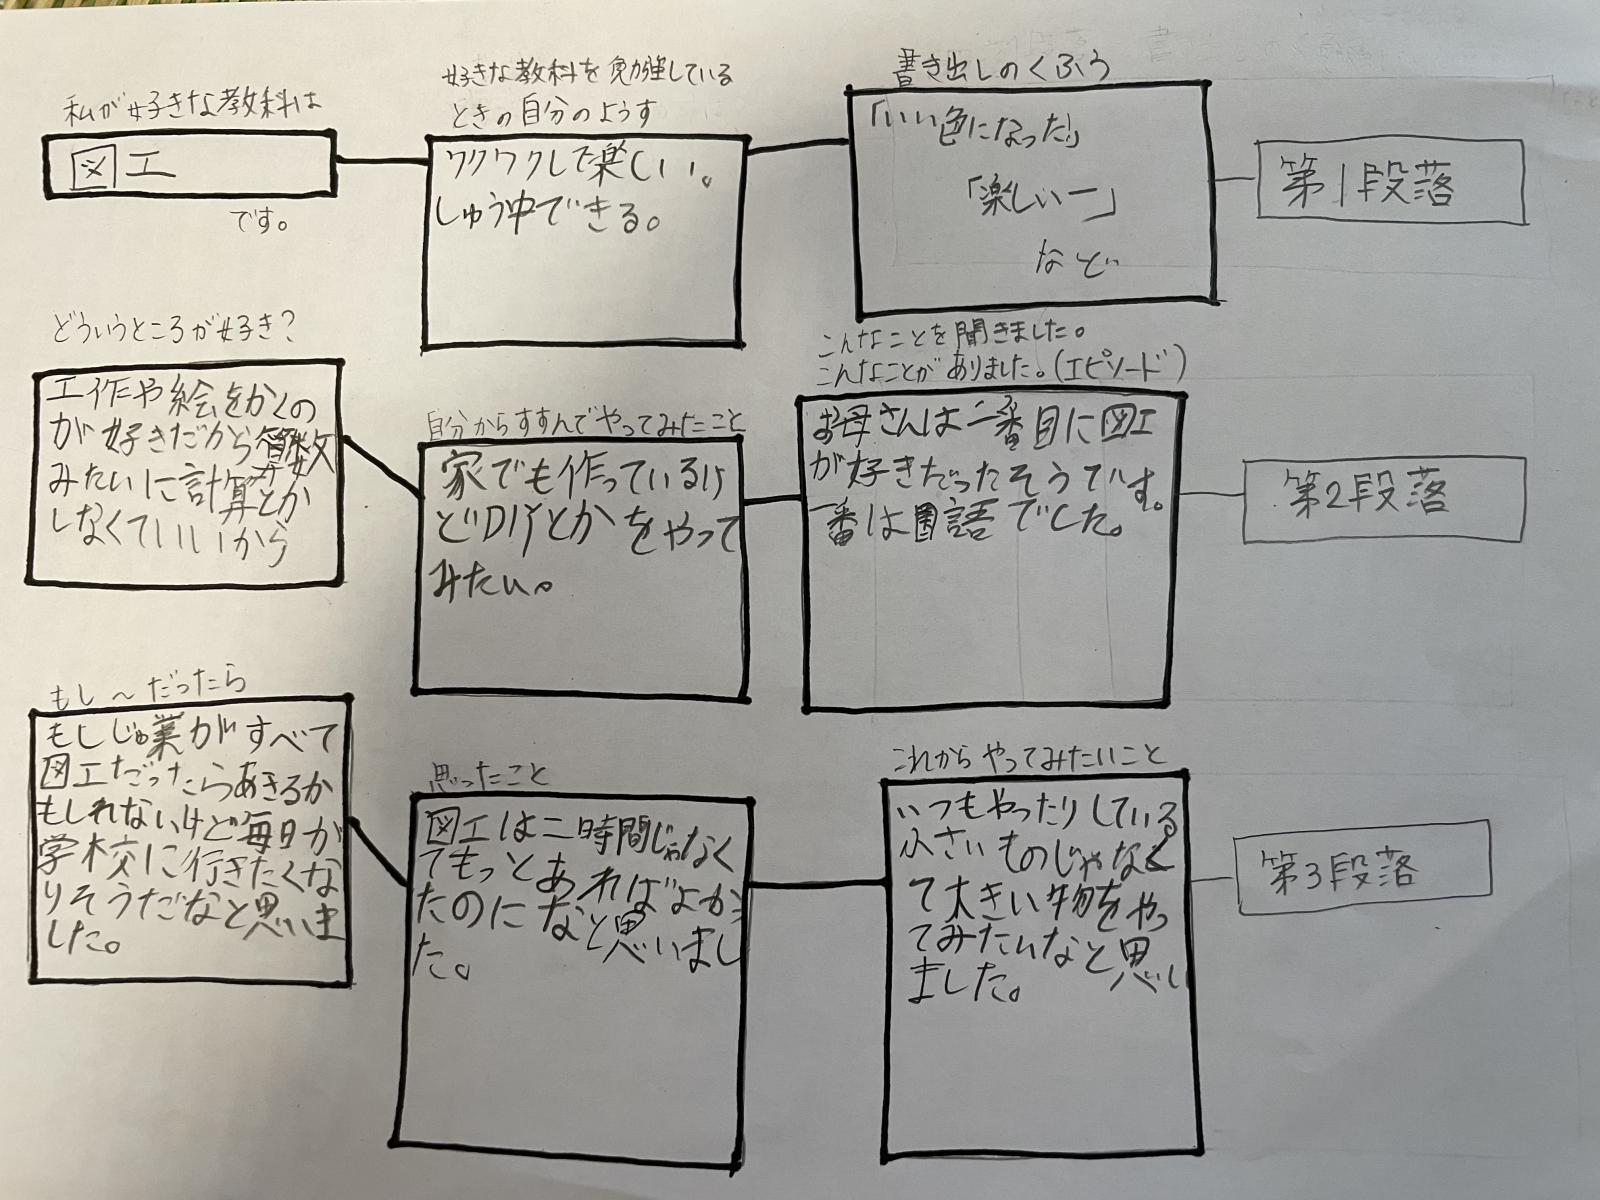 私が好きな教科は
図工
です。
好きな教科を勉強している
ときの自分のようす
ワクワクして楽しい。
しゅう中できる。
書き出しのくふう
「いい色になった!」
「楽しいー」
など
第1段落
どういうところが好き?
工作や絵をかくの
が好きだから算数
みたいに計算とか
しなくていいから
自分からすすんでやってみたこと
家でも作っているけ
どDIYとかをやって
みたい。
こんなことを聞きました。
こんなことがありました。(エピソード)
お母さんは二番目に図工
が好きだったそうです。
一番は国語でした。
第2段落
もし〜だったら
もしじゅ業がすべて
図工だったらあきるか
もしれないけど毎日が
学校に行きたくな
りそうだなと思いま
した。
思ったこと
図工は二時間じゃなく
てもっとあればよかっ
たのになと思いまし
た。
これからやってみたいこと
いつもやったりしている
小さいものじゃなく
て大きい物をやっ
てみたいなと思い
ました。
第3段落